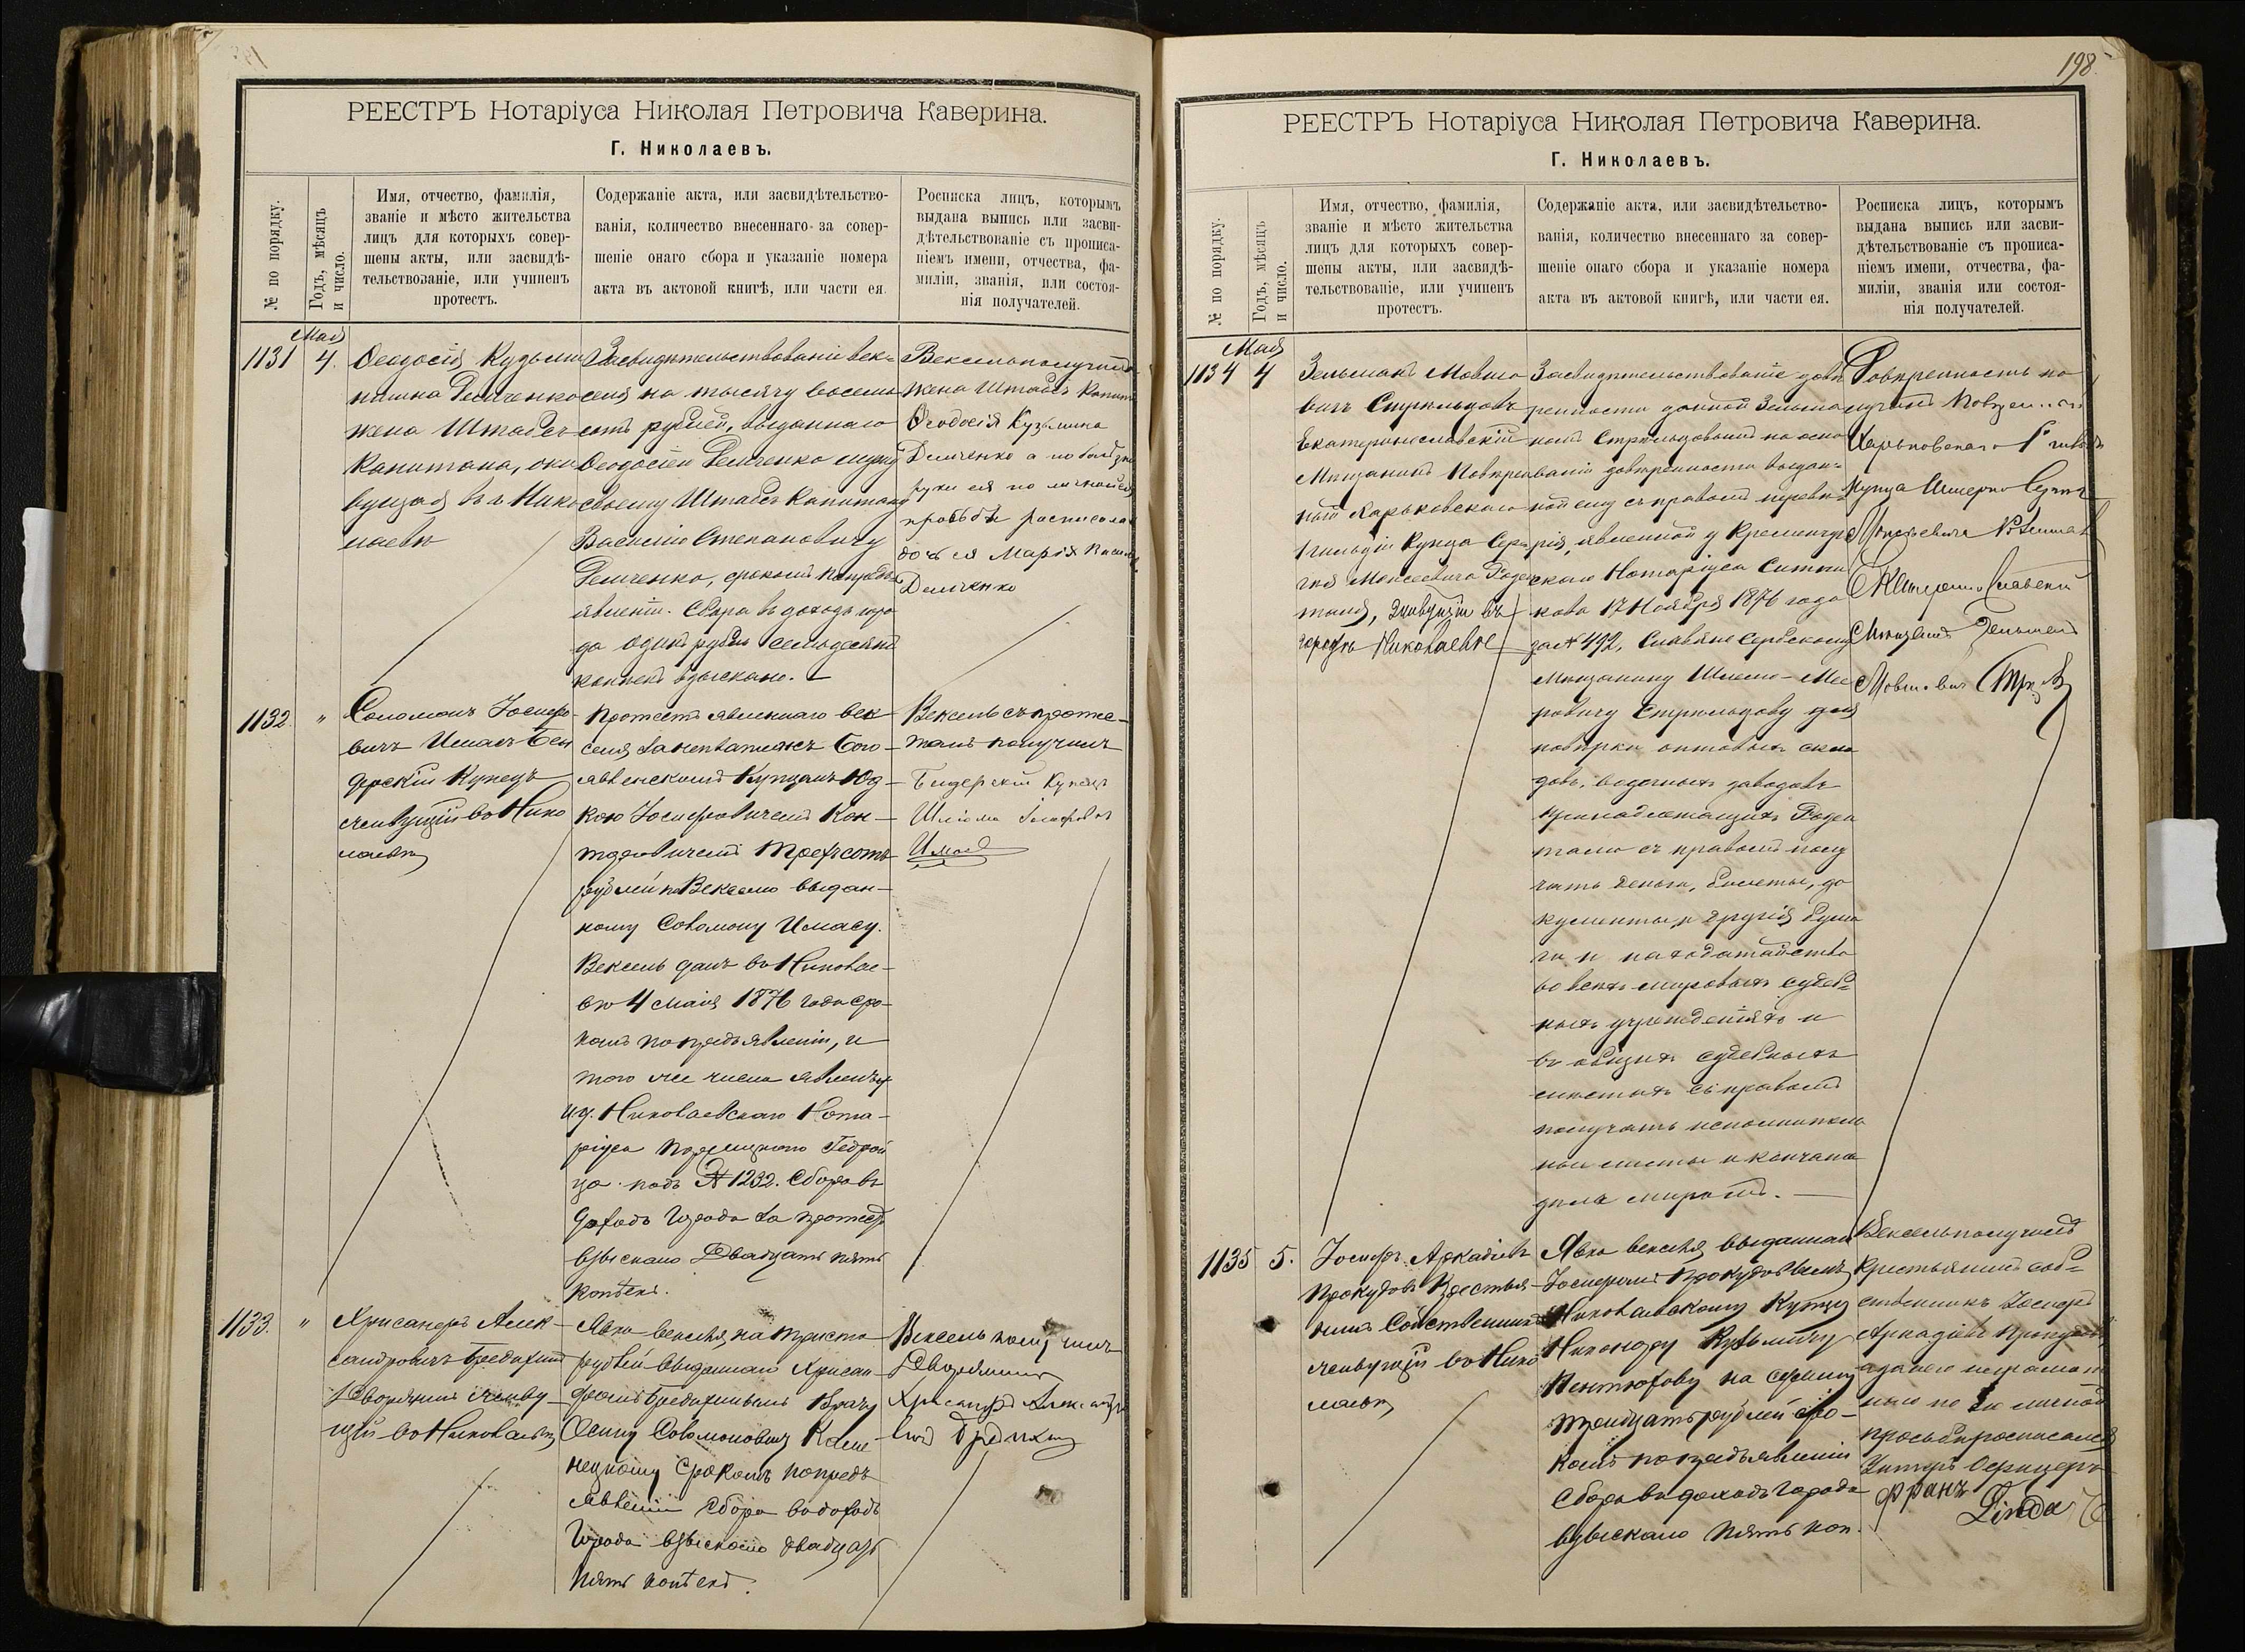 РЕЕСТРЪ Нотаріуса Николая Петровича Каверина.
Г. Николаевъ.
№ по порядку.
Годъ, мѣсяцъ
и число.
Имя, отчество, фамилія,
званіе и мѣсто жительства
лицъ для которыхъ совер-
шены акты, или засвидѣ-
тельствованіе, или учиненъ
протестъ.
Содержаніе акта, или засвидѣтельство-
ванія, количество внесеннаго за совер-
шеніе онаго сбора и указаніе номера
акта въ актовой книгѣ, или части ея
Росписка лицъ, которымъ
выдана выпись или засви-
дѣтельствованіе съ прописа-
ніемъ имени, отчества, фа-
миліи, званія, или состоя-
нія получателей.
Мая
1131
4.
Феодосія Кузьми
нишна Демченко
жена Штабсъ
Капитана, жи
вущая въ г. Нико
лаевѣ
Засвидѣтельствованіе век=
селя на тысячу восемь
сотъ рублей, выданнаго
Феодосіею Демченко мужу
своему Штабсъ Капитану
Василію Степановичу
Демченко, срокомъ по предъ
явленіи. Сбора въ доходъ горо
да одинъ рубль семьдесятъ
копѣекъ взыскано.
Вексель получила
жена Штабсъ Капит
Феодосія Кузьмина
Демченко а по болѣзни
руки ея по личной ея
просьбѣ расписалась
дочь ея Марія Василь
Демченко
1132.
"
Соломонъ Іосифо
вичъ Имасъ Бен
дерскій Купецъ
живущій въ Нико
лаевѣ
Протестъ явленнаго век
селя
явленскимъ Купцомъ Юд-
кою Іосифовичемъ Кон-
торовичемъ Трехъсотъ
рублей по Векселю выдан-
ному Соломону Имасу.
Вексель данъ въ Николае-
вѣ 4 мая 1876 года сро-
комъ по предъявленіи, и
того же числа явленъ у
и д. Николаевскаго Нота-
ріуса
ца подъ № 1232. Сбора въ
доходъ города за протестъ
взыскано Двадцать пять
копѣекъ.
Вексель съ проте-
томъ получилъ
Бендерскій Купецъ
Шліома Іосифовъ
Имасъ
1133.
"
Хрисанфъ Алек-
сандровичъ Бредихинъ
Дворянинъ живу-
щій въ Николаевѣ
Явка векселя, на триста
рублей выданнаго Хрисан-
фомъ Бредихинымъ Врачу
Осипу Соломоновичу Каме
нецкому срокомъ по предъ
явленіи Сбора въ доходъ
Города взыскано двадцать
пять копѣекъ.
Вексель получилъ
Дворянинъ
Хрисанфъ Александро
вичъ Бредихинъ
198.
РЕЕСТРЪ Нотаріуса Николая Петровича Каверина.
Г. Николаевъ.
№ по порядку.
Годъ, мѣсяцъ
и число.
Имя, отчество, фамилія,
званіе и мѣсто жительства
лицъ для которыхъ совер-
шены акты, или засвидѣ-
тельствованіе, или учиненъ
протестъ.
Содержаніе акта, или засвидѣтельство-
ванія, количество внесеннаго за совер-
шеніе онаго сбора и указаніе номера
акта въ актовой книгѣ, или части ея.
Росписка лицъ, которымъ
выдана выпись или засви-
дѣтельствованіе съ прописа-
ніемъ имени, отчества, фа-
миліи, званія или состоя-
нія получателей.
Мая
1134
4
Зельманъ Мовшо
вичъ Стрѣльцовъ
Екатеринославскій
Мѣщанинъ Повѣрен
ный Харьковскаго
1 гильдіи Купца Сер
гѣя Моисеевича Розен
таля, живущій въ
городѣ Николаевѣ
Засвидѣтельствованіе довѣ
ренности данной Зельма
номъ Стрѣльцовымъ на осно
ваніи довѣренности выдан=
ной ему съ правомъ передовѣ
рія, явленной у Кременчуг
скаго Нотаріуса Ситни
кова 17 Ноября 1876 года
за № 492, Славяно Сербскому
Мѣщанину Шлемѣ-Мее
ровичу Стрѣльцову для
повѣрки оптовыхъ скла
довъ, водочныхъ заводовъ
принадлежащихъ Розен
талю съ правомъ полу
чать деньги, билеты, до
кументы и другія бума
ги и на ходатайство
во всехъ мировыхъ судеб=
ныхъ учрежденіяхъ и
въ общихъ судебныхъ
мѣстахъ съ правомъ
получать исполнитель
ные листы и кончать
дѣла миромъ.
Довѣренность по
лучилъ
Харьковскаго 1й гильдіи
Купца
Екатеринославскій
Мѣщанинъ Зельманъ
Мовшовичъ
1135
5.
Іосифъ Аркадіевъ
Прокудовъ Крестья-
нинъ Собственникъ
живущій въ Нико
лаевѣ
Явка векселя выданнаго
Іосифомъ Прокудовымъ
Николаевскому Купцу
Никонору Кузьмичу
Пентюхову на сумму
тридцать рублей сро-
комъ по предъявленіи
Сбора въ доходъ города
взыскано пять коп.
Вексель получилъ
Крестьянинъ соб=
ственникъ Іосифъ
Аркадіевъ Прокудовъ,
а за него неграмот
наго по его личной
просьбѣ росписался
Унтеръ Офицеръ
Францъ
Linda